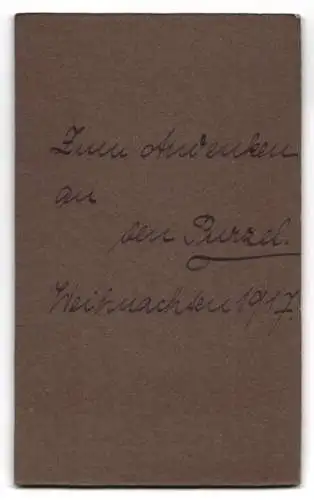 Zum Andenken
an
den Purzel.
Weihnachten 1917.